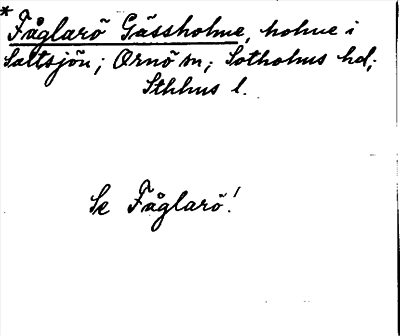 * Fåglarö Gässholme, holme i
Saltsjön; Ornö sn; Sotholms hd;
Sthlms l.
Se Fåglarö!